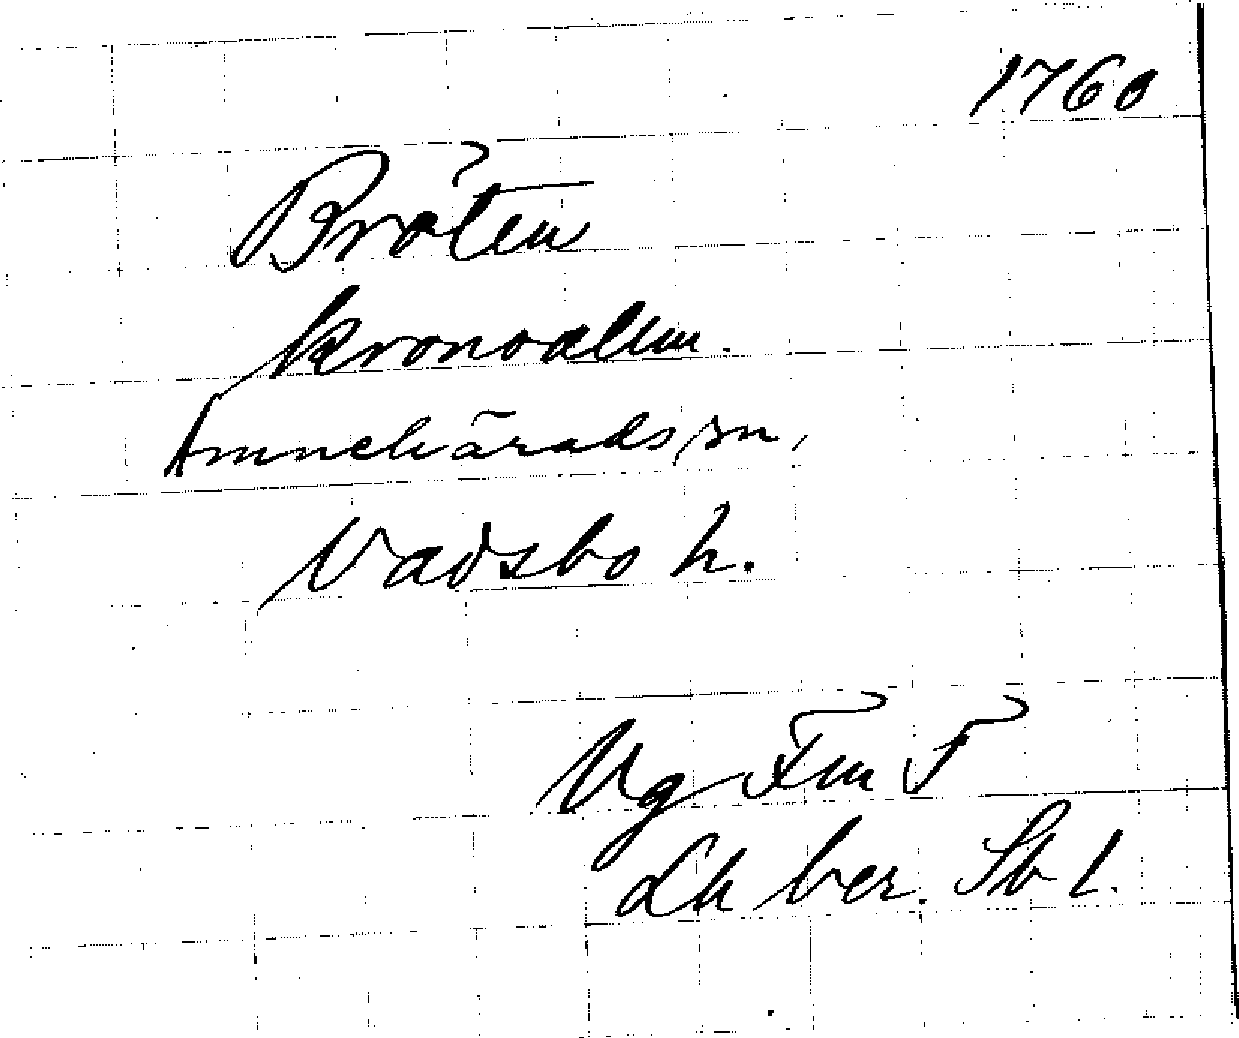 1760
Bråten
kronoallm.
Amnehärads sn,
Vadsbo h.
Vg Fm F
Lh ber. Sb 1.